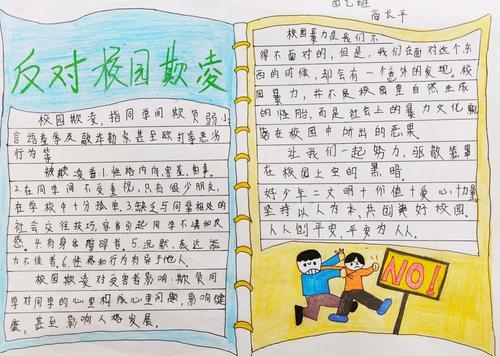 四乙班
商长平
反对校园欺凌
校园欺凌,指同学间欺负弱小
言语羞辱及敲诈勒索甚至殴打等恶劣
行为等
被欺凌者:1.性格内向、害羞、怕事.
2.在同学间不受重视,只有很少朋友,
在学校中十分孤单.3.缺乏与同辈相处的
社会交往技巧,容易引起同学不满和反
感.4.有身体障碍者.5.沉默、表达能
力不佳者.6.性格和行为有异于他人.
校园欺凌对受害者影响:欺负同
学对同学的心里构成心里问题,影响健
康,甚至影响人格发展.
校园暴力是我们不
得不面对的,但是,我们在面对这个东
西的时候,却会有一个意外的发现。校
园暴力,并不是校园里自然生成
的怪胎,而是社会上的暴力文化飘
落在校园中的恶果
让我们一起努力,驱散笼罩
在校园上空的黑暗.
好少年=文明+价值+爱心+力量
坚持以人为本,共创美好校园.
人人创平安,平安为人人.
NO!